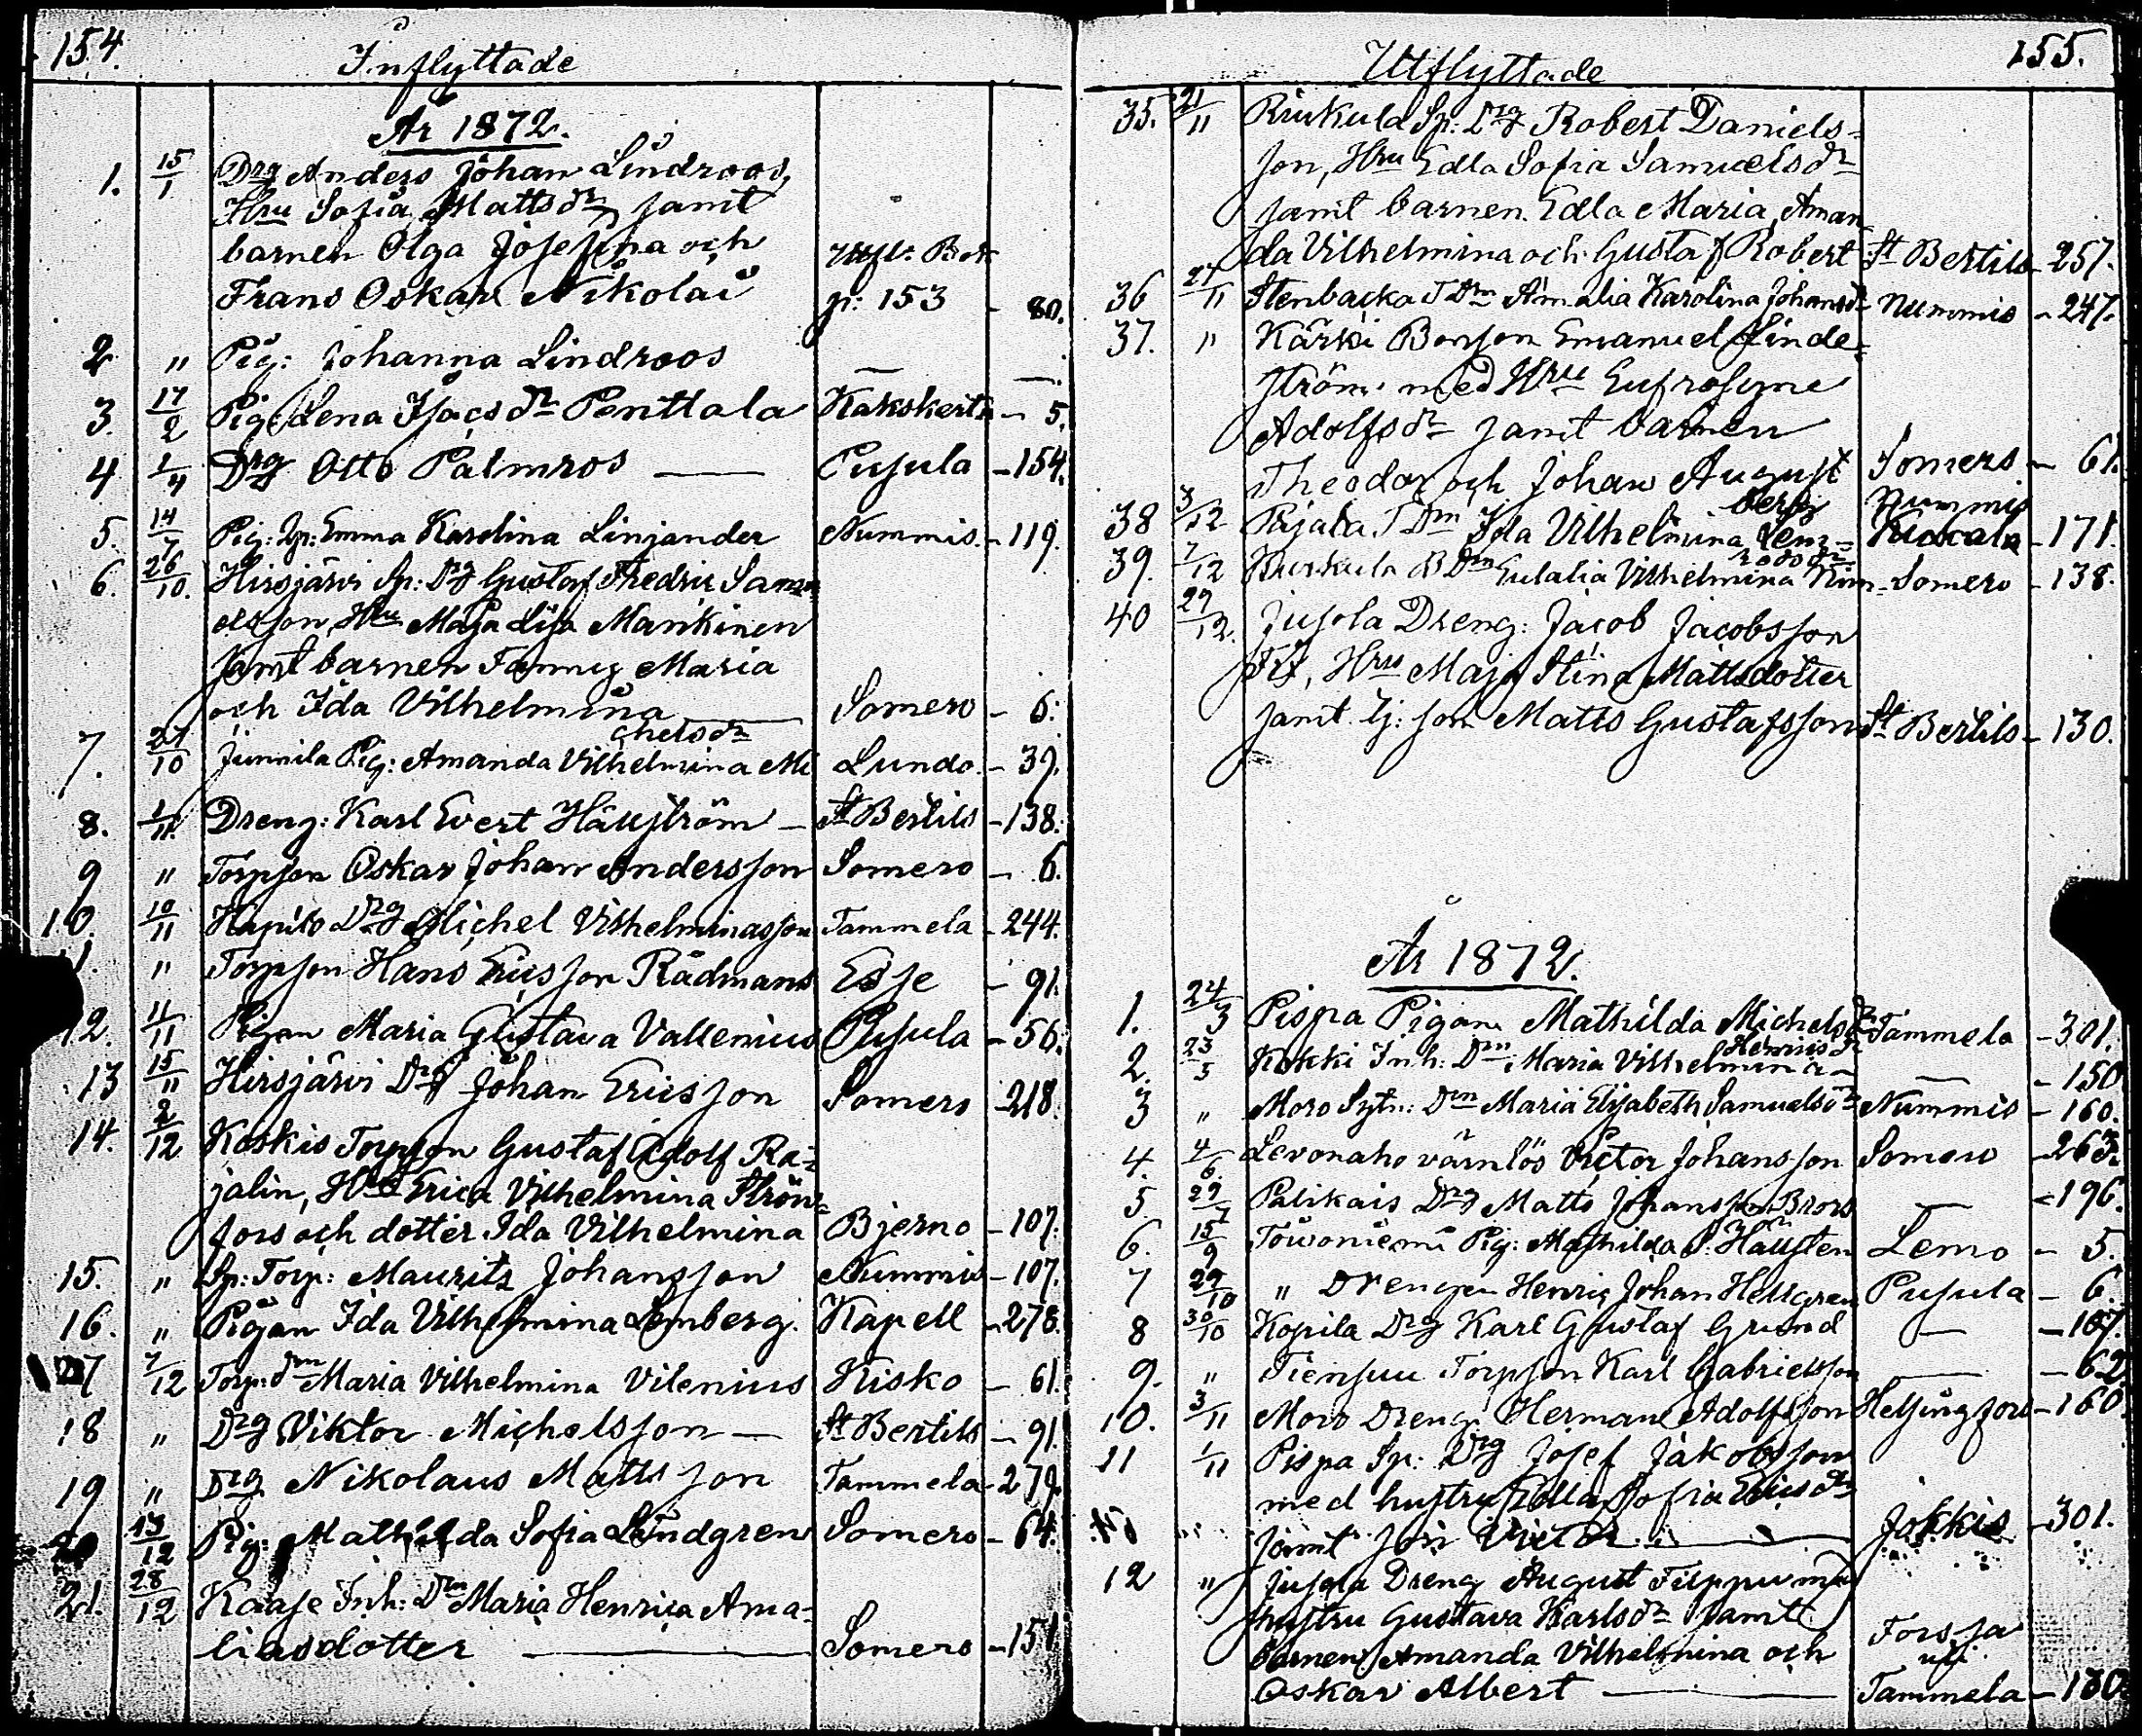 154.
Inflyttade
År 1872.
1. 15/1 Drg Anders Johan Lindroos,
Hru Sofia Mattsdr samt
barnen Olga Josefina och Utfl. Bok
Frans Oskar Nikolai p: 153 - 80.
2 " Pig: Johanna Lindroos — —
3. 17/2 Pig: Lena Isacsdr Penttala Kakskerta - 5.
4 1/4 Drg Otto Palmros — Pusula - 154.
5. 14/7 Pig: Sp: Emma Karolina Linjander Nummis. - 119.
6. 26/10. Hirsjärvi Sp: Drg Gustaf Fredric Samu-
elsson, Hru Maja Lisa Mankinen
samt barnen Fanny Maria
och Ida Vilhelmina — Somero - 6.
chelsdr
7. 27/10 Junnila Pig: Amanda Vilhelmina Mi Lundo. - 39.
8. 1/11. Dreng: Karl Evert Häusström — St Bertils - 138.
9 " Torpson Oskar Johan Andersson Somero - 6.
10. 10/11 Drg Michel Vilhelminasson Tammela - 244.
11. " Torpson Hans Ericsson Rådmans Esse - 91.
12. 11/11 Pigan Maria Gustava Vallenius Pusula - 56.
13 15/11 Hirsjärvi Drg Johan Ericsson Somero - 218.
14. 2/12 Koskis Torpson Gustaf Adolf Ra-
jalin, Hru Erica Vilhelmina Ström-
fors och dotter Ida Vilhelmina Bjerno - 107.
15. " Sp: Torp: Maurits Johansson Nummis - 107.
16. " Pigan Ida Vilhelmina Lemberg. Kapell - 278.
17 7/12 Torp: dm Maria Vilhelmina Vilenius Kisko - 61.
18 " Drg Viktor Michelsson — St Bertils - 91.
19 " Drg Nikolaus Mattsson Tammela - 279.
20 13/12 Pig: Mathilda Sofia Lindgren Somero - 64.
21. 28/12 Kaase Inh: Dm Maria Henrica Ama-
liasdotter — Somero - 151.
155.
Utflyttade
35. 21/11 Riukula Sp: Drg Robert Daniels-
son, Hru Edla Sofia Samuelsdr
samt barnen Edla Maria, Aman
da Vilhelmina och Gustaf Robert St Bertils - 257.
36 27/11 Stenbacka T Dm Amalia Karolina Johansdr Nummis - 247.
37. " Kärki Bonson Emanuel Linde-
ström med Hru Eufrosyne
Adolfsdr samt barnen
Theodor och Johan August Somero - 61.
berg Nummis
38 3/12 Pajala T Dm Ida Vilhelmina Lem- - 171.
39. 7/12 B Dm Eulalia Vilhelmina Somero - 138.
40 29/12. Jusola Dreng: Jacob Jacobsson
Hru Maja Stina Mattsdotter
samt. son Matts Gustafsson St Bertils - 130.
År 1872.
1. 24/3 Pispa Pigan Mathilda Michelsdr Tammela - 301.
Henricsdr
2. 23/5 Kokki Inh: Dm Maria Vilhelmina — — - 150
3 " Moro Sytn: Dm Maria Elisabeth Samuelsdr Nummis - 160.
4. 4/6. Levonaho värnlös Victor Johansson Somero - 263.
5. 29/7 Palikais Drg Matts Johansson Brors — - 196.
6. 15/9 Pig: Mathilda S. Häusten Lemo - 5.
7 29/10 " Drengen Henric Johan Hellgren Pusula - 6.
8 30/10 Kopila Drg Karl Gustaf Grund — - 107.
9. " Tiensuu Torpson Karl Gabrielsson — - 62.
10. 3/11 Moro Dreng: Herman Adolfsson Helsingfors - 160.
11 1/11 Pispa Sp: Drg Josef Jakobsson
med hustru Edla Sofia Ericsdr
samt son Victor — Jokkis - 301.
12 " Jusola Dreng August Filppu med
hustru Gustava Karlsdr samt
barnen Amanda Vilhelmina och Forssa
uti
Oskar Albert — Tammela - 130